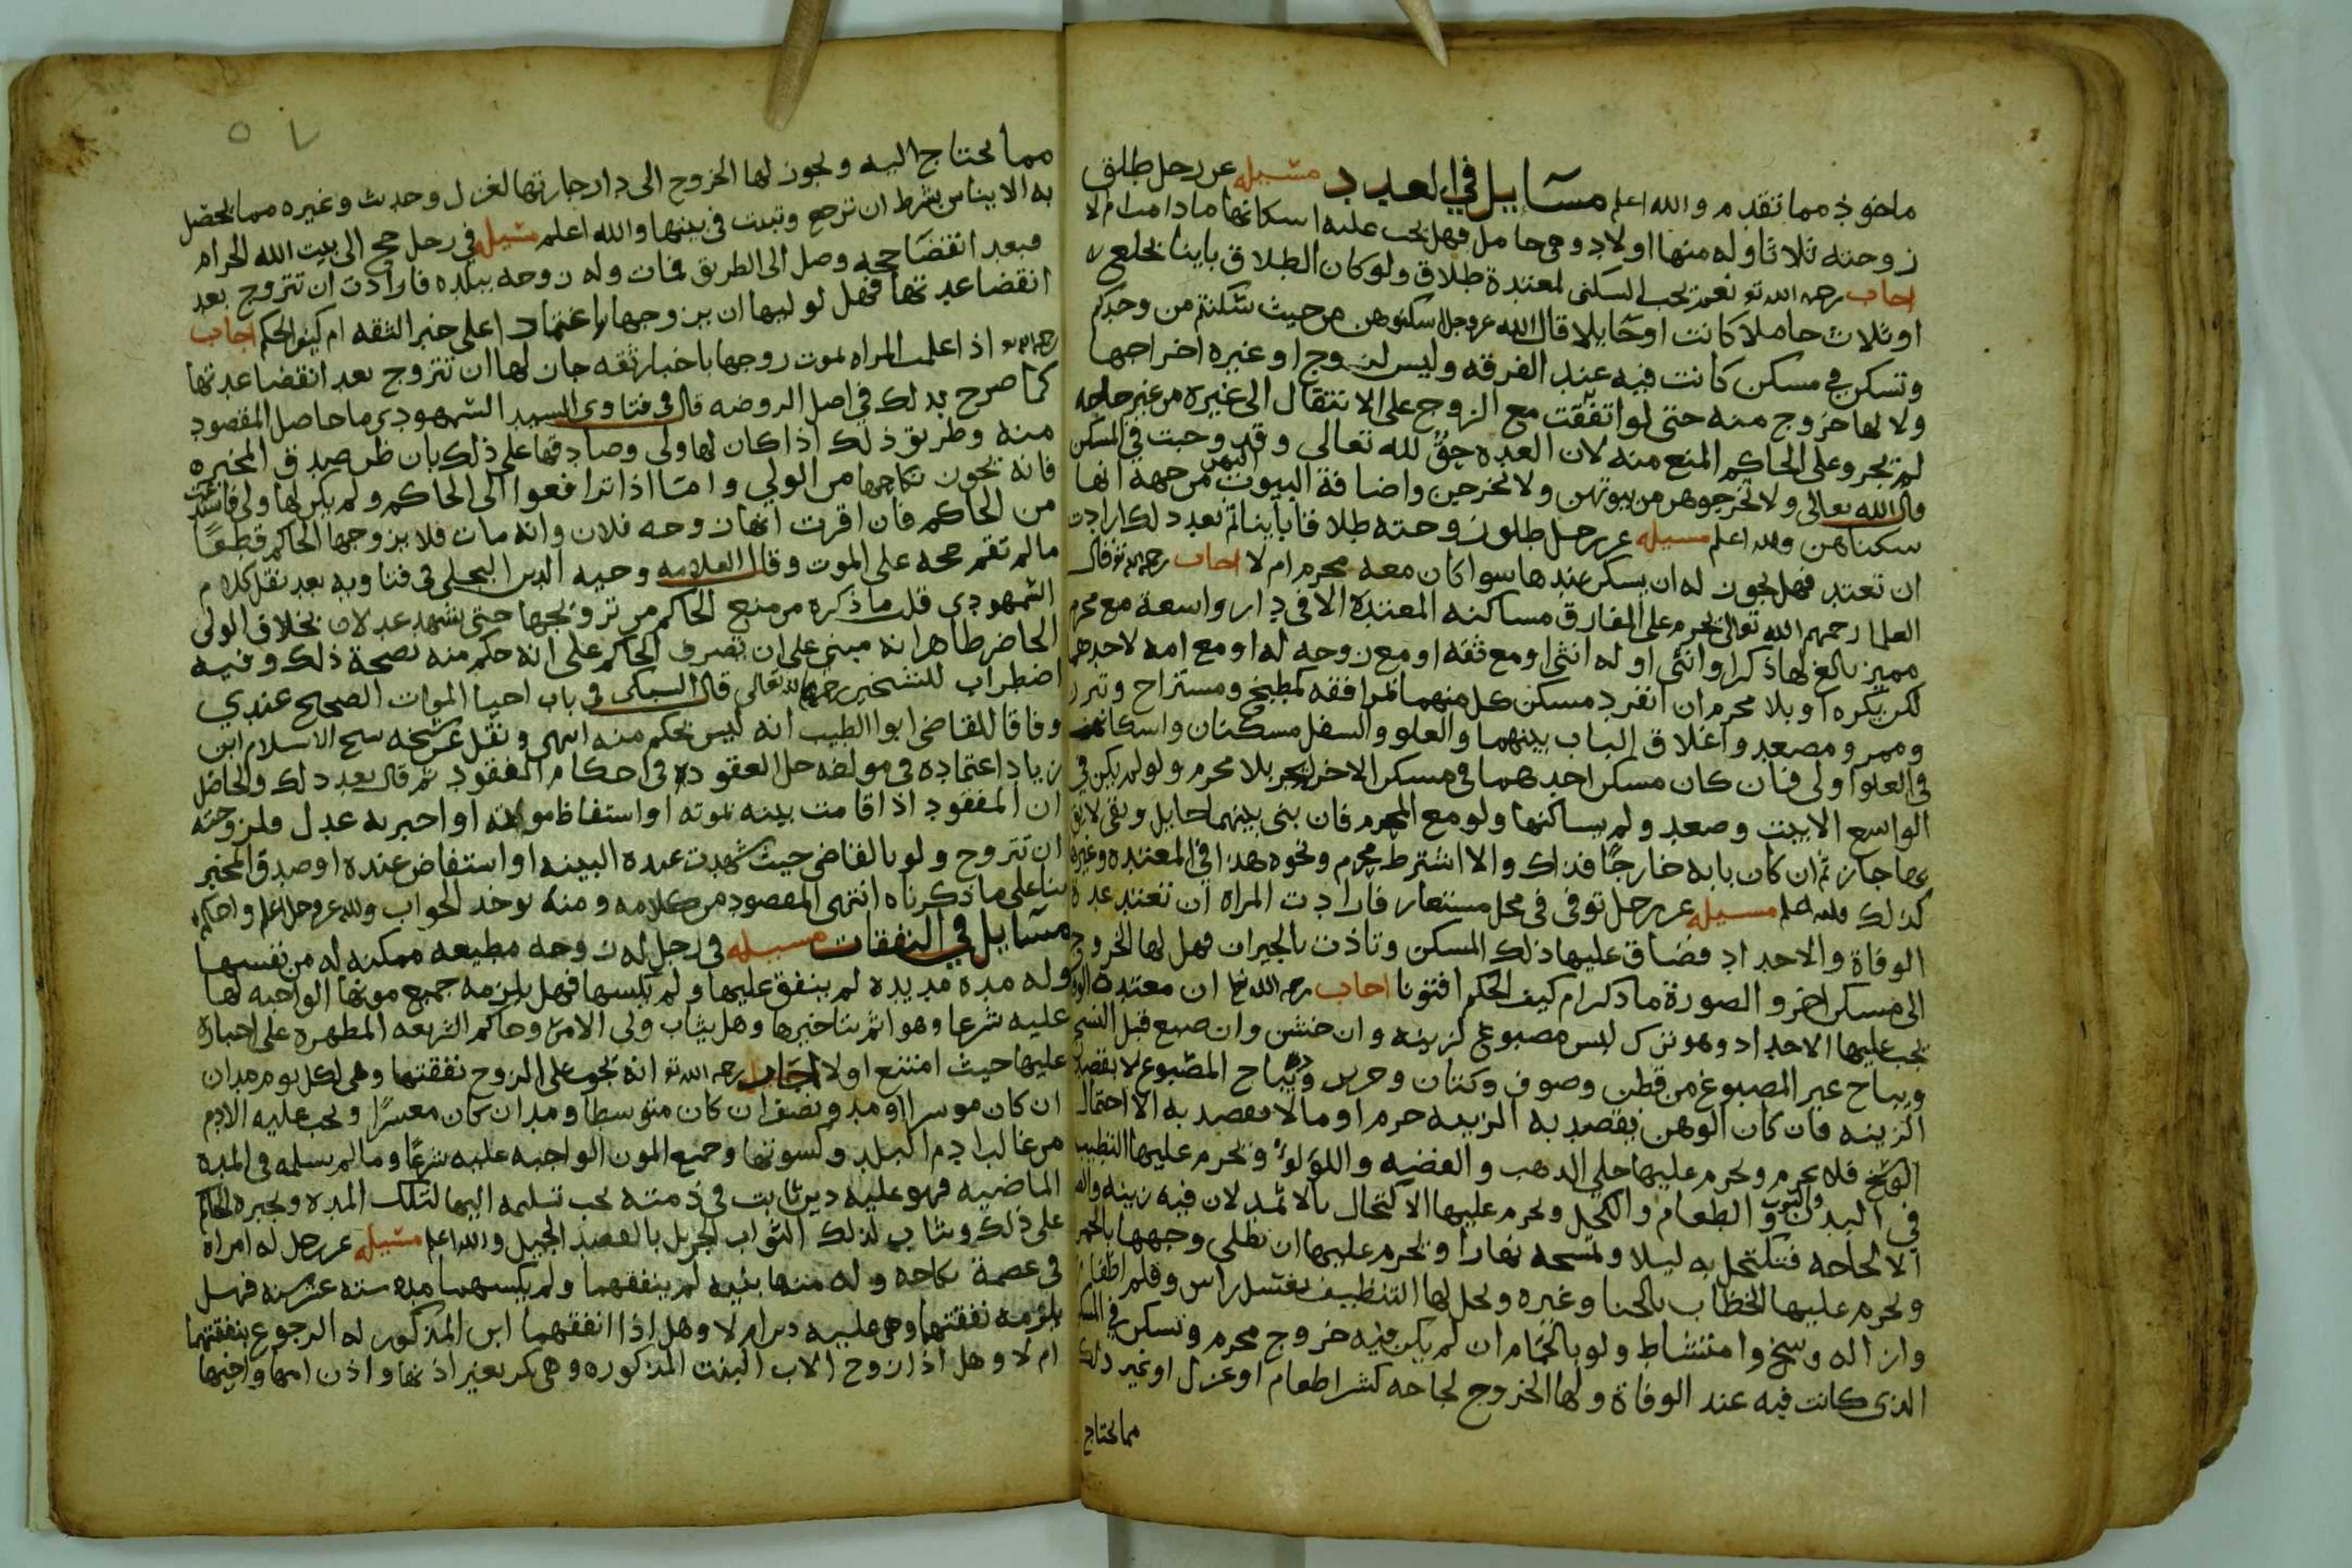 ماخوذ مما تقدم والله اعلم مسايل في العدد مسيله عن رجل طلق
زوجته ثلاثا وله منها اولاد وهي حامل فهل يجب عليه اسكانها مادامت ام لا
اجاب رحمه الله تع نعم تجب السكنى لمعتدة طلاق ولو كان الطلاق باينا بخلع
او ثلاث حاملا كانت او حايلا قال الله عز وجل اسكنوهن من حيث سكنتم من وجدكم
وتسكن في مسكن كانت فيه عند الفرقه وليس لزوج او غيره اخراجها
ولا لها خروج منه حتى لو اتفقت مع الزوج على الانتقال الى غيره من غير حاجه
لم يجز وعلى الحاكم المنع منه لان العده حق لله تعالى وقد وجبت في المسكن
قال الله تعالى ولا تخرجوهن من بيوتهن ولا يخرجن واضافة البيوت اليهن من جهة انها
سكناهن والله اعلم مسيله عن رجل طلق زوجته طلاقا باينا ثم بعد ذلك ارادت
ان تعتد فهل يجوز له ان يسكن عندها سوا كان معه محرم ام لا اجاب رحمه الله تع قال
العلما رحمهم الله تعالى يحرم على المفارق مساكنه المعتدة الا في دار واسعة مع محرم
مميز بالغ لها ذكرا وانثى او له انثى او مع ثقه او مع زوجه له او مع امه لاحدهما
لكن يكره او بلا محرم ان انفرد مسكن كل منهما بمرافقه كمطبخ ومستراح
وممر ومصعد واغلاق الباب بينهما والعلو والسفل مسكنان واسكانها
في العلو اولى فان كان مسكن احدهما في مسكن الاخر لم يجز بلا محرم ولو لم يكن في
الواسع الا بيت وصعد ولم يساكنها ولو مع المحرم فان بنى بينهما حايل وبقي لايق
بها جاز ثم ان كان بابه خارجا فذاك والا اشترط محرم ونحوه هذا في المعتده وغيره
كذلك والله اعلم مسيله عن رجل توفي في محل مستعار فارادت المراة ان تعتد عدة
الوفاة والاحداد فضاق عليها ذلك المسكن وتاذت بالجيران فهل لها الخروج
الى مسكن اخر والصورة ما ذكر ام كيف الحكم افتونا اجاب رحمه الله تعا ان معتدة
يجب عليها الاحداد وهو ترك لبس مصبوغ لزينه وان خشن وان صبغ قبل النسج
ويباح غير المصبوغ من قطن وصوف وكتان وحرير ويباح المصبوغ لا بقصد
الزينه فان كان بقصد به الزينه حرم او ما لا يقصد به الا احتمال
الوسخ فلا يحرم ويحرم عليها حلي الذهب والفضه واللؤلؤ ويحرم عليها التطيب
في البدن والثوب والطعام والكحل ويحرم عليها الاكتحال بالاثمد لان فيه زينه
الا لحاجه فتكتحل به ليلا وتمسحه نهارا ويحرم عليها ان تطلى وجهها
ويحرم عليها الخظاب بالحنا وغيره ويحل لها التنظيف بغسل راس وقلم اظفار
وازاله وسخ وامتشاط ولو بالحمام ان لم يكن فيه خروج محرم وتسكن في
الذي كانت فيه عند الوفاة ولها الخروج لحاجه كشرا طعام او غزل او غير ذلك
مما يحتاج
مما يحتاج اليه ويجوز لها الخروج الى دار جارتها لغزل وحدث وغيره مما يحصل
به الايناس بشرط ان ترجع وتبيت في بيتها والله اعلم مسيله في رجل حج الى بيت الله الحرام
فبعد انقضا حجه وصل الى الطريق فمات وله زوجه ببلده فارادت ان تتزوج بعد
انقضا عدتها فهل لوليها ان يزوجها اعتمادا على خبر الثقه ام كيف الحكم اجاب
رحمه الله تع اذا علمت المراه بموت زوجها باخبار ثقه جاز لها ان تتزوج بعد انقضا عدتها
كما صرح بذلك في اصل الروضه قال في فتاوى السيد السمهودي ما حاصل المقصود
منه وطريق ذلك اذا كان لها ولي وصادقها على ذلك بان ظن صدق المخبره
فانه يجوز نكاحها من الولي وامتا اذا ترافعوا الى الحاكم ولم يكن لها ولي
من الحاكم فان اقرت انها زوجه فلان وانه مات فلا يزوجها الحاكم قطعا
مالم تقم حجه على الموت وقال العلامه وجيه الدين في فتاويه بعد نقل كلام
السمهودي قلت ما ذكره من منع الحاكم من تزويجها حتى يشهد عدلان بخلاف الولي
الحاضر ظاهر انه مبني على ان تصرف الحاكم على انه حكم منه بصحة ذلك وفيه
اضطراب للشيخين رحمهما الله تعالى قال السبكي في باب احيا الموات الصحيح عندي
وفاقا للقاضي ابوا الطيب انه ليس بحكم منه انتهى ونقل عن شيخه شيخ الاسلام ابن
زياد اعتماده في مولفه حل العقود في احكام المفقود ثم قال بعد ذلك والحاصل
ان المفقود اذا قامت بينه بموته او استفاظ موته او اخبر به عدل فلزوجته
ان تتزوج ولو بالقاضي حيث شهدت عنده البينه او استفاض عنده او صدق المخبر
بنا على ما ذكرناه انتهى المقصود من كلامه ومنه يوخذ الجواب والله عز وجل اعلم واحكم
مسايل في النفقات مسيله في رجل له زوجه مطيعه ممكنه له من نفسها
وله مدة مديدة لم ينفق عليها ولم يكسها فهل يلزمه جميع مونها الواجبه لها
عليه شرعا وهو اثم بتاخيرها وهل يثاب ولي الامر وحاكم الشريعه المطهره على اجباره
عليها حيث امتنع او لا اجاب رحمه الله تع انه تجب على الزوج نفقتها وهي لكل يوم مدان
ان كان موسرا او مد ونصف ان كان متوسطا ومد ان كان معسرا ويجب عليه الادم
من غالب ادم البلد وكسوتها وجميع المون الواجبه عليه شرعا وما لم يسلمه في المده
الماضيه فهو عليه دين ثابت في ذمته يجب تسليمه اليها لتلك المده ويجبره الحاكم
على ذلك ويثاب لذلك الثواب الجزيل بالقصد الجميل والله اعلم مسيله عن رجل له امراه
في عصمة نكاحه وله منها بنيه لم ينفقهما ولم يكسهما مده سته عشر سنه فهل
يلزمه نفقتهما وهي عليه دين ام لا وهل اذا انفقهما ابن المذكور له الرجوع بنفقتهما
ام لا وهل اذا زوج الاب البنت المذكوره وهي بكر بغير اذنها واذن امها واخيها